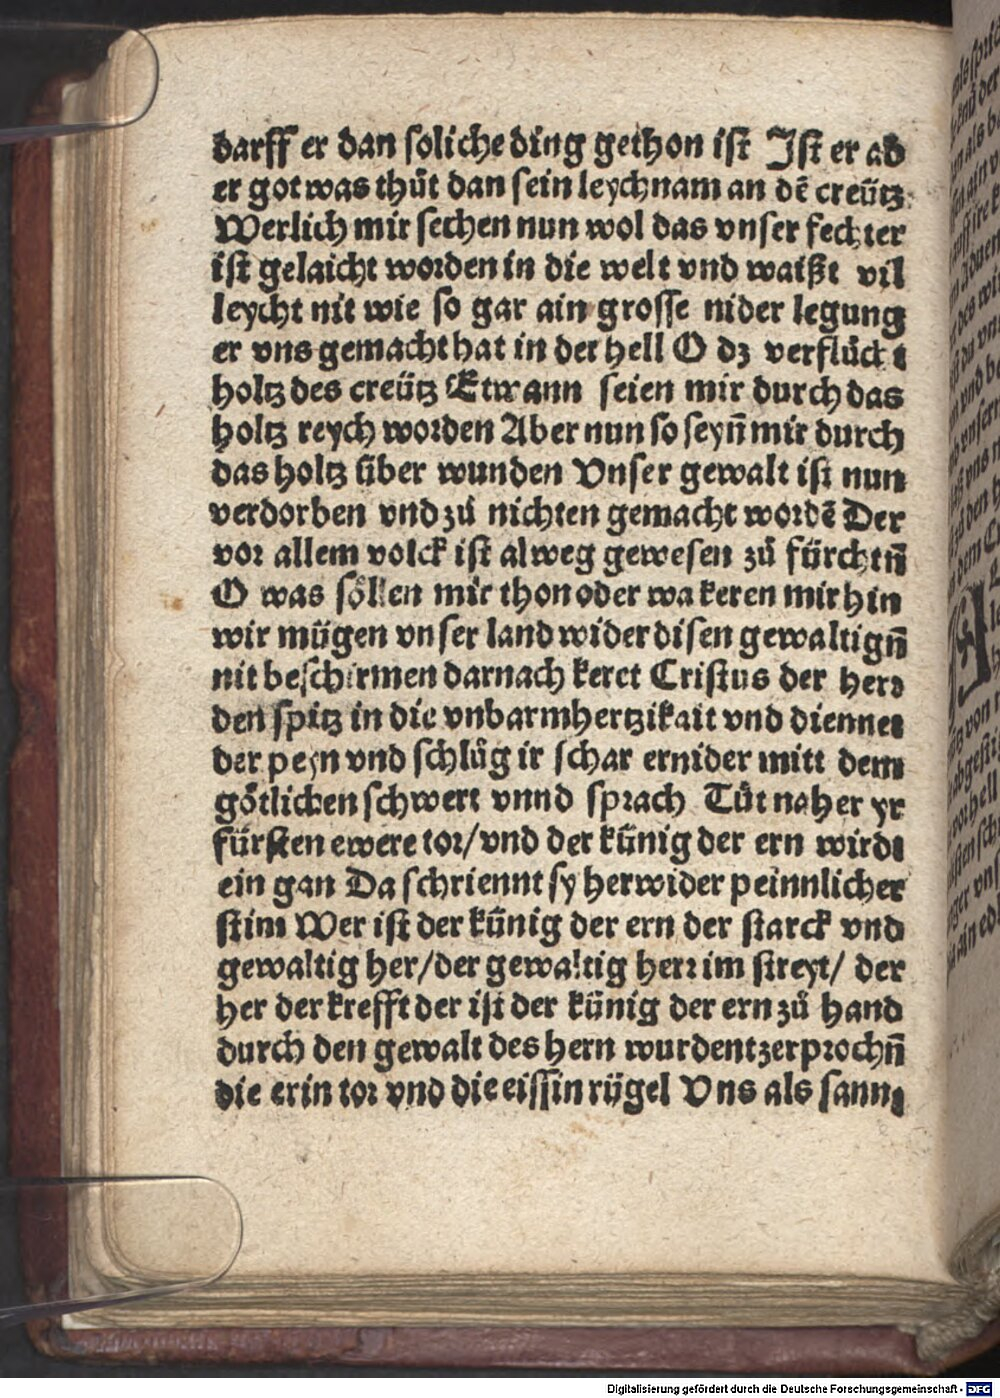 darff er dan soliche ding gethon ist Ist er ab
er got was thůt dan sein leychnam an dē creütz
Werlich mir sechen nun wol das vnser fechter
ist gelaicht worden in die welt vnd waißt vil
leycht nit wie so gar ain grosse nider legung
er vns gemacht hat in der hell O dz verflůckt
holtz des creütz Etwann seien mir durch das
holtz reych worden Aber nun so seyn̄ mir durch
das holtz über wunden Unser gewalt ist nun
verdorben vnd zů nichten gemacht wordē Der
vor allem volck ist alweg gewesen zů fürchtn̄
O was söllen mir thon oder wa keren mir hin
wir mügen vnser land wider disen gewaltign̄
nit beschirmen darnach keret Cristus der herr
den spitz in die vnbarmhertzikait vnd diennet
der peyn vnd schlůg ir schar ernider mitt dem
götlichen schwert vnnd sprach Tůt naher yr
fürsten ewere tor/ vnd der künig der ern wirdt
ein gan Da schriennt sy herwider peinnlicher
stim Wer ist der künig der ern der starck vnd
gewaltig her/ der gewaltig herr im streyt/ der
her der krefft der ist der künig der ern zů hand
durch den gewalt des hern wurden tzerprochn̄
die erin tor vnd die eissin rügel Uns als sannt
Digitalisierung gefördert durch die Deutsche Forschungsgemeinschaft - DFG